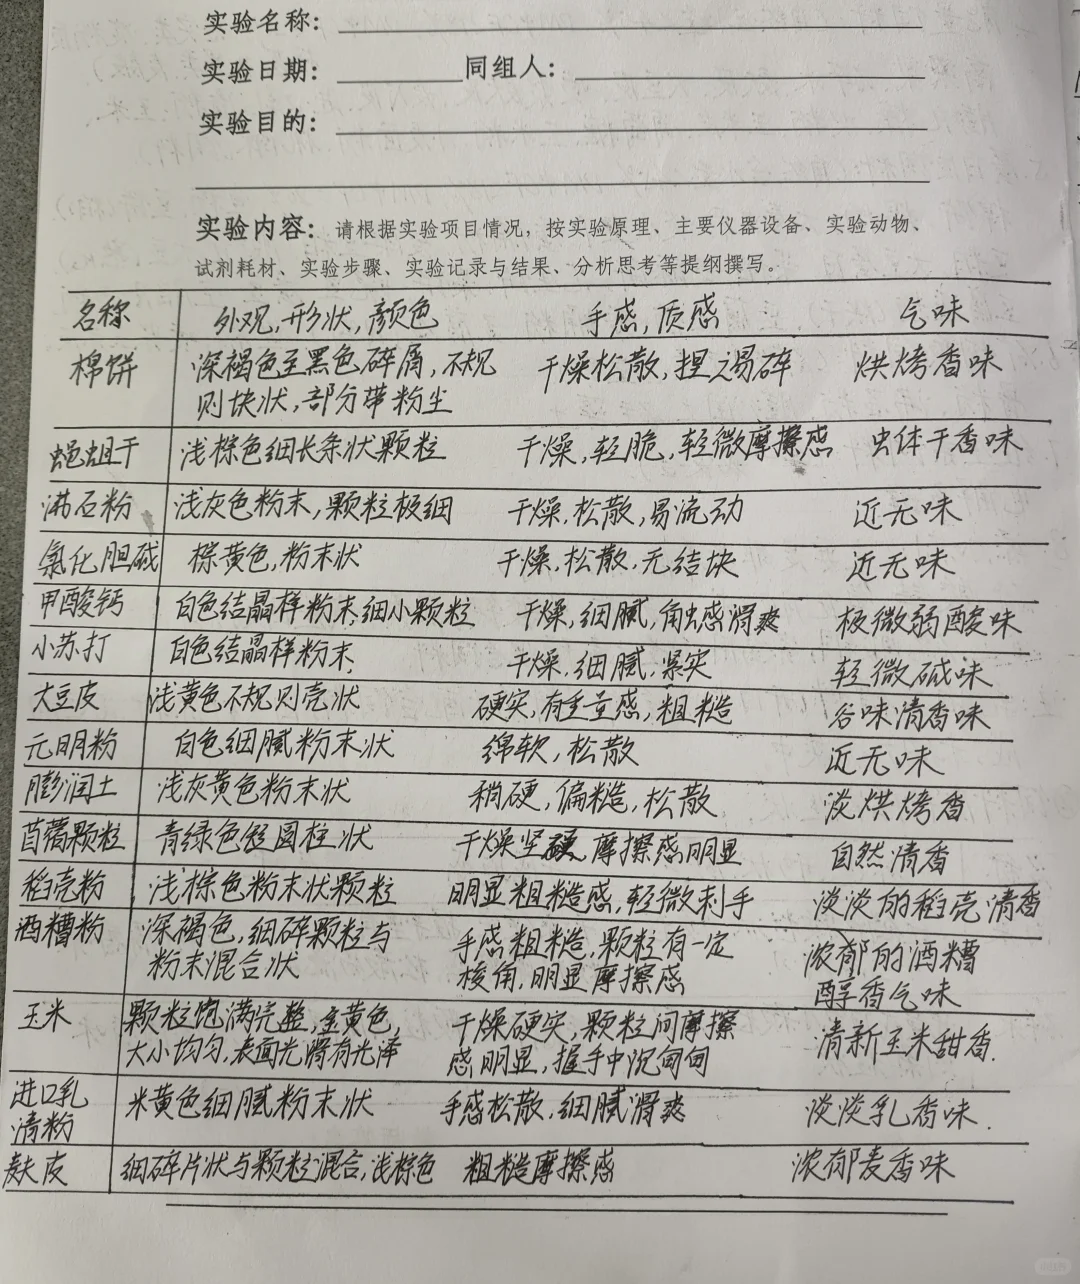 实验名称:
实验日期: 同组人:
实验目的:
实验内容: 请根据实验项目情况, 按实验原理、主要仪器设备、实验动物、
试剂耗材、实验步骤、实验记录与结果、分析思考等提纲撰写。
名称 外观,形状,颜色 手感,质感 气味
棉饼 深褐色至黑色碎屑,不规 干燥松散,捏之易碎 烘烤香味
则块状,部分带粉尘
蝇蛆干 浅棕色细长条状颗粒 干燥,轻脆,轻微摩擦感 虫体干香味
沸石粉 浅灰色粉末,颗粒极细 干燥,松散,易流动 近无味
氯化胆碱 棕黄色,粉末状 干燥,松散,无结块 近无味
甲酸钙 白色结晶样粉末,细小颗粒 干燥,细腻,触感滑爽 极微弱酸味
小苏打 白色结晶样粉末, 干燥,细腻,紧实 轻微碱味
大豆皮 浅黄色不规则壳状 硬实,有重量感,粗糙 谷味清香味
元明粉 白色细腻粉末状 绵软,松散 近无味
膨润土 浅灰黄色粉末状 稍硬,偏糙,松散 淡烘烤香
苜蓿颗粒 青绿色短圆柱状 干燥坚硬,摩擦感明显 自然清香
稻壳粉 浅棕色粉末状颗粒 明显粗糙感,轻微刺手 淡淡的稻壳清香
酒糟粉 深褐色,细碎颗粒与 手感粗糙,颗粒有一定 浓郁的酒糟
粉末混合状 棱角,明显摩擦感 醇香气味
玉米 颗粒饱满完整,金黄色, 干燥硬实,颗粒间摩擦 清新玉米甜香.
大小均匀,表面光滑有光泽 感明显,握手中沉甸甸
进口乳 米黄色细腻粉末状 手感松散,细腻滑爽 淡淡乳香味.
清粉
麸皮 细碎片状与颗粒混合,浅棕色 粗糙摩擦感 浓郁麦香味